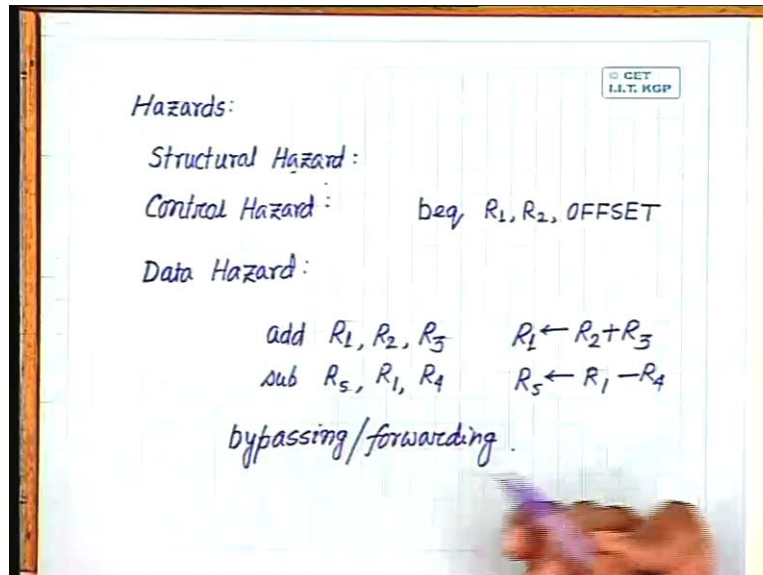 © CET
I.I.T. KGP
Hazards:
Structural Hazard:
Control Hazard: beq R₁, R₂, OFFSET
Data Hazard:
add R₁, R₂, R₃ R₁ ← R₂+R₃
sub R₅, R₁, R₄ R₅ ← R₁ −R₄
bypassing/forwarding.